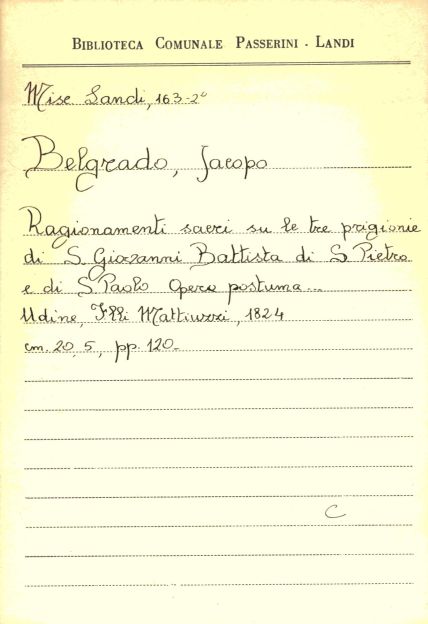 BIBLIOTECA COMUNALE PASSERINI - LANDI
Misc Landi, 163-2°
Belgrado, Jacopo
Ragionamenti sacri su le tre prigionie
di S. Giovanni Battista di S. Pietro
e di S. Paolo Opera postuma...
Udine, F.lli Mattiuzzi, 1824
cm. 20,5, pp. 120-
C